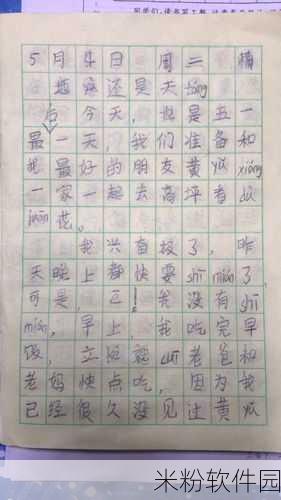 5月4日 周二 晴
还是天
后今天,也是五一
最一天,我们准备和
我最好的朋友黄 xiáng
一家一起去高坪看
juān花。
我兴奋极了,昨
天晚上都快要shī mián了,
可是,已!我没有shī
mián,早上,我吃完早
饭,立刻就 老爸和
老妈快点吃,因为我
已经很久没见过黄
米粉软件园